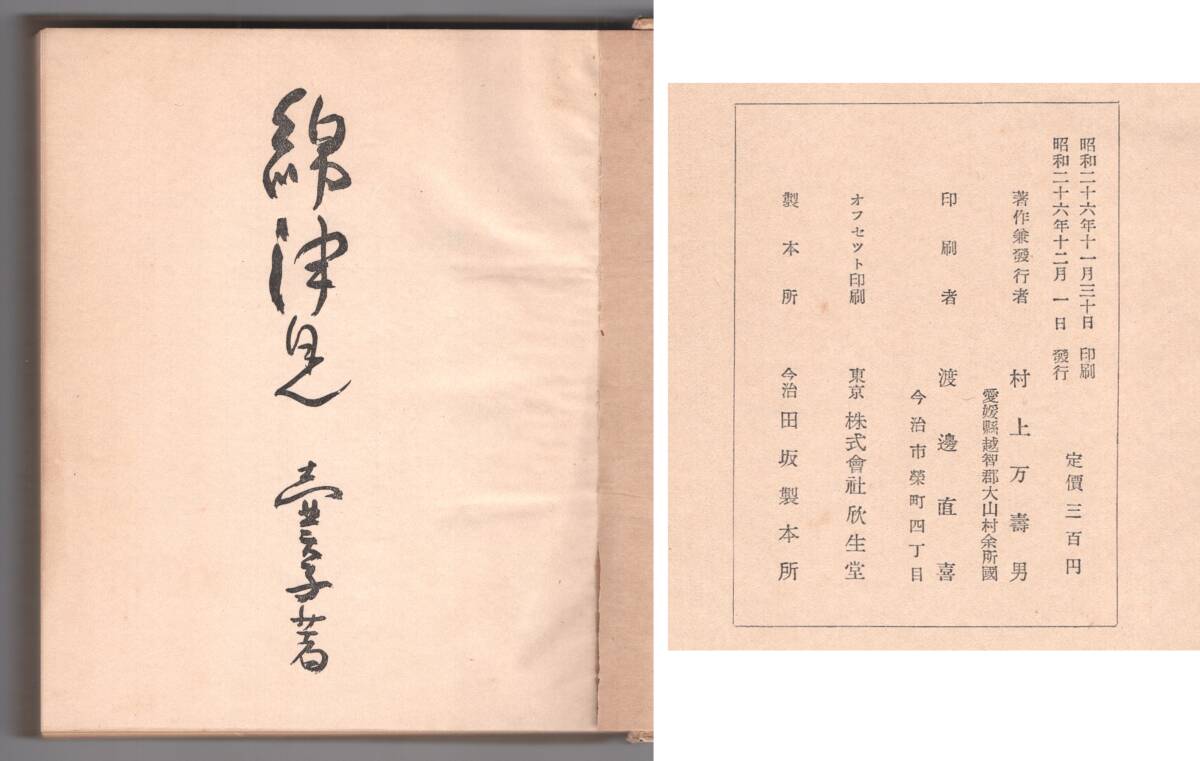 綿津見
壷天子著
昭和二十六年十一月三十日 印刷
昭和二十六年十二月 一 日 發行
定價三百円
著作兼發行者 村上万壽男
愛媛縣越智郡大山村余所國
印刷者 渡邊直喜
今治市榮町四丁目
オフセツト印刷 東京 株式會社欣生堂
製本所 今治 田坂製本所